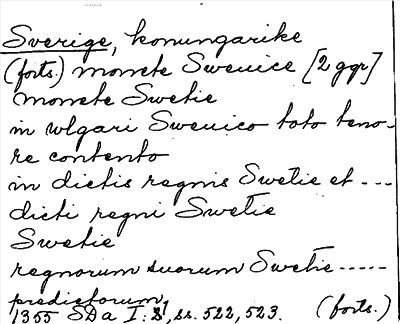 Sverige, konungarike
(forts.) monete Swenice [2 ggr]
monete Swetie
in wlgari Swenico toto teno-
re contento
in dictis regnis Swetie et ---
dicti regni Swetie
Swetie
regnorum suorum Swetie -----
predictorum,
1355 SDa I:2, ss. 522, 523. (forts.)